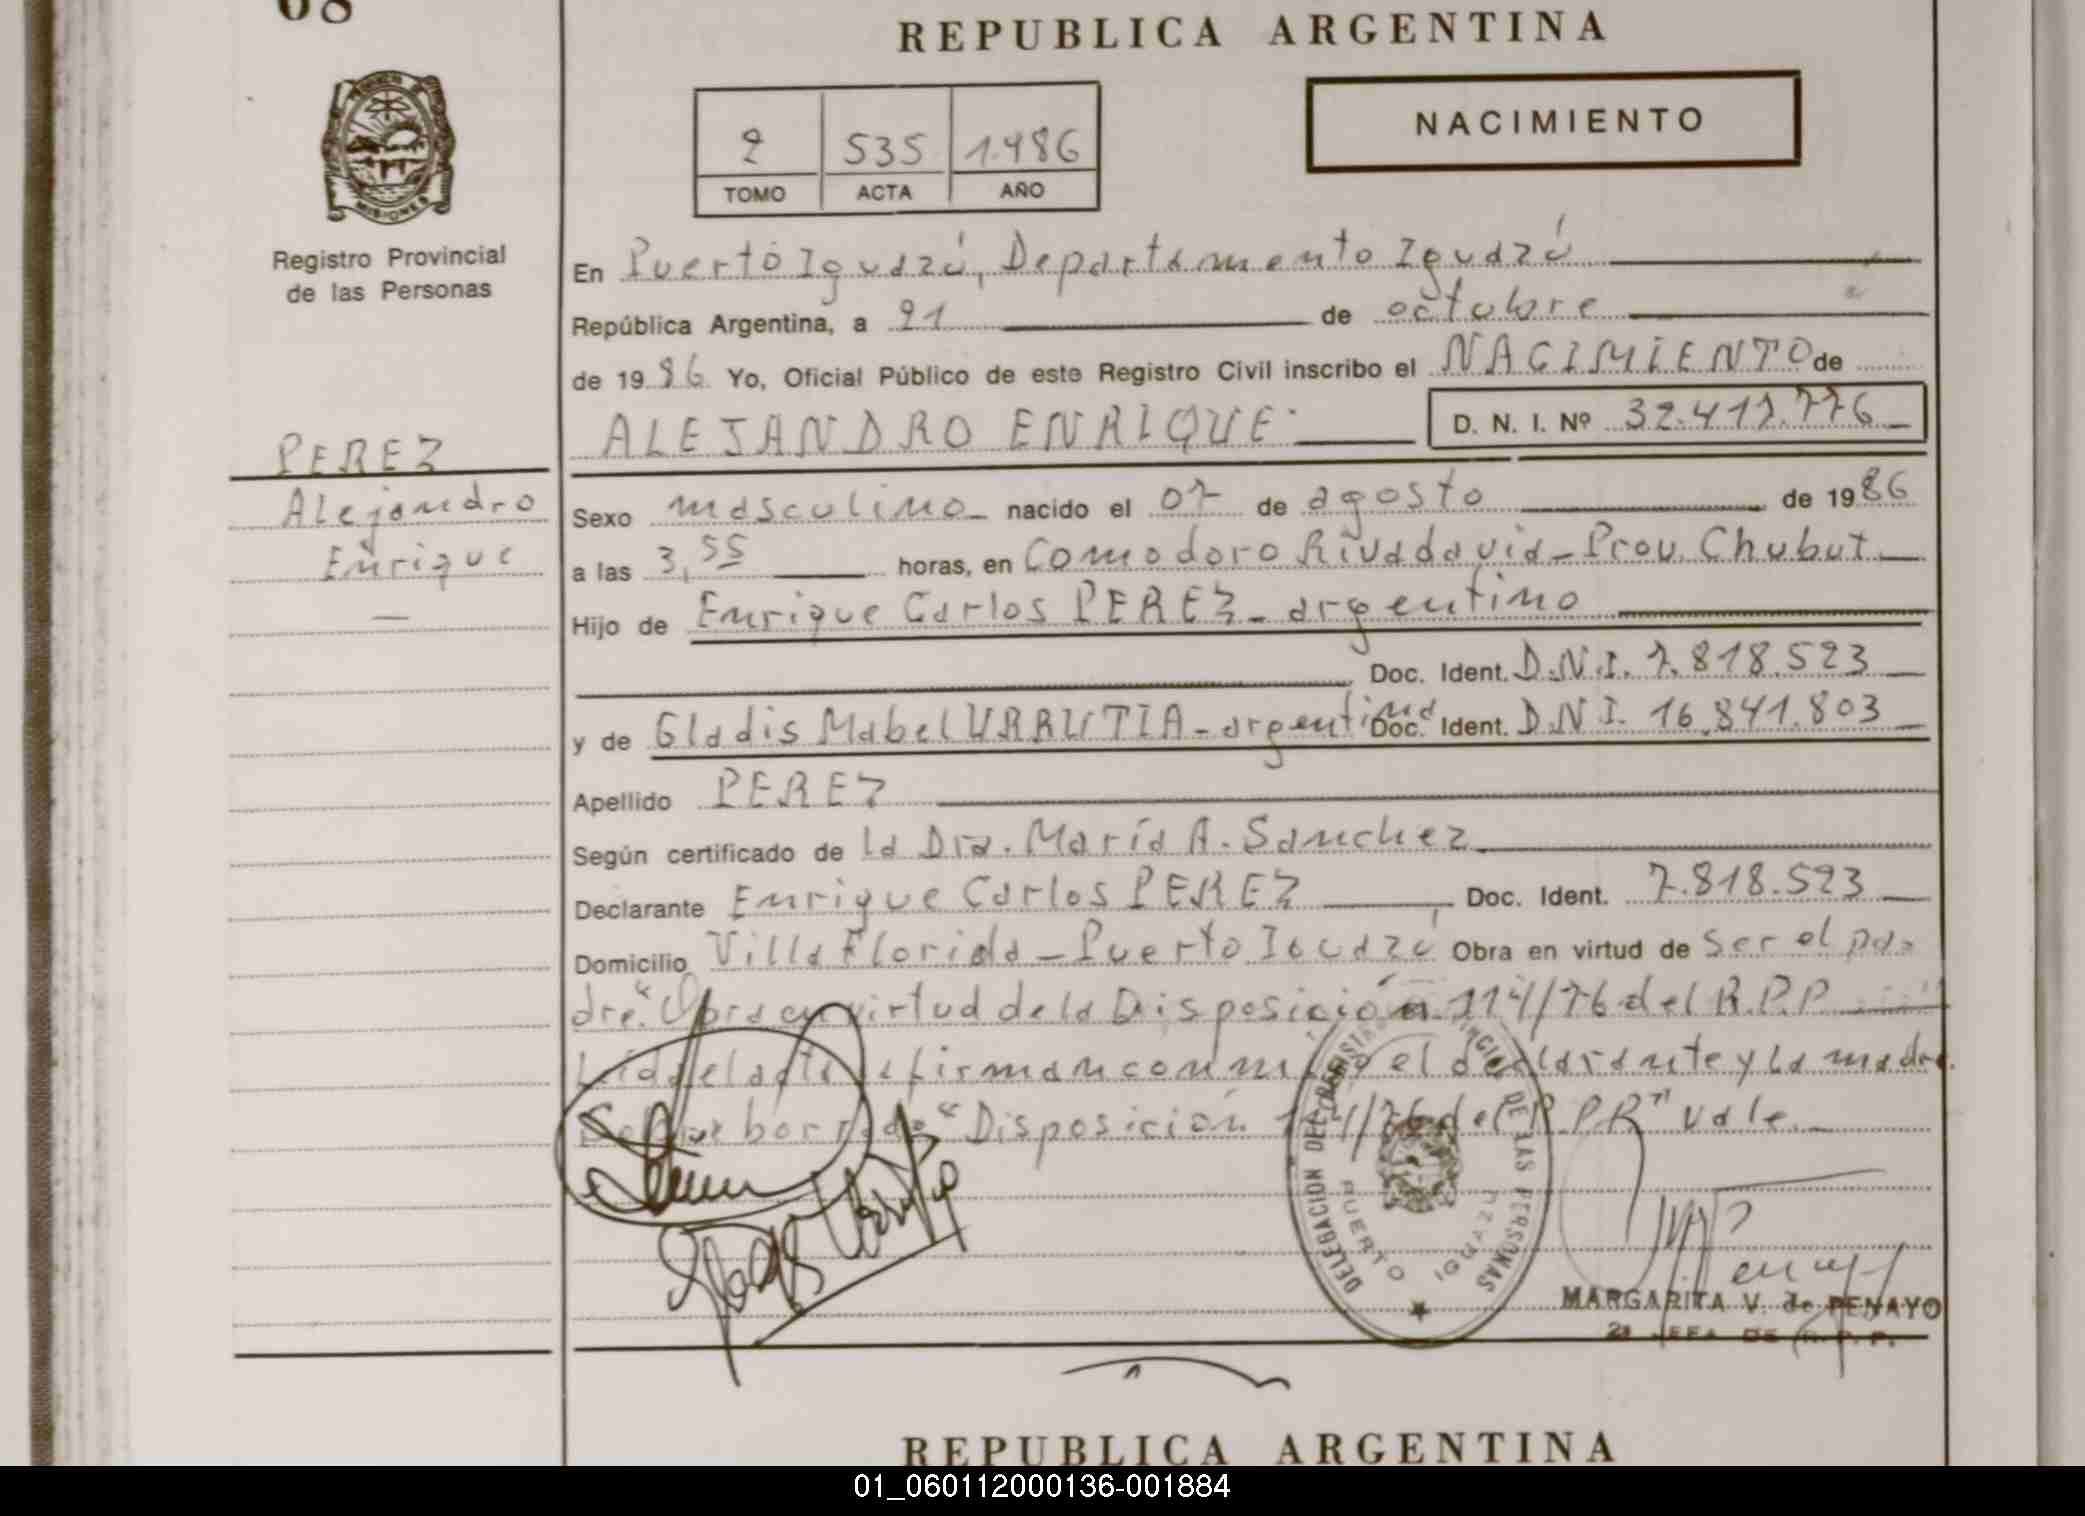 68
REPUBLICA ARGENTINA
MISIONES
Registro Provincial
de las Personas
2 535 1.986
TOMO ACTA AÑO
NACIMIENTO
En Puerto Iguazú, Departamento Iguazú
República Argentina, a 21 de octubre
de 1986 Yo, Oficial Público de este Registro Civil inscribo el NACIMIENTO de
ALEJANDRO ENRIQUE D. N. I. Nº 32.417.776
PEREZ
Alejandro
Enrique
Sexo masculino nacido el 07 de agosto de 1986
a las 3,55 horas, en Comodoro Rivadavia - Prov. Chubut
Hijo de Enrique Carlos PEREZ - argentino
Doc. Ident. D.N.I. 7.818.523
y de Gladis Mabel URRUTIA - argentina Doc. Ident. D.N.I. 16.841.803
Apellido PEREZ
Según certificado de la Dra. María A. Sanchez
Declarante Enrique Carlos PEREZ Doc. Ident. 7.818.523
Domicilio Villa Florida - Puerto Iguazú Obra en virtud de ser el pa=
dre. "Obra en virtud de la Disposición 114/76 del R.P.P
Leída el acta la firman conmigo el declarante y la madre.
borrado "Disposición 114/76 del R.P.P" Vale.
DELEGACION DEL REGISTRO PROVINCIAL DE LAS PERSONAS
PUERTO IGUAZU
MARGARITA V. de PENAYO
JEFA DE R. P. P.
REPUBLICA ARGENTINA
01_060112000136-001884